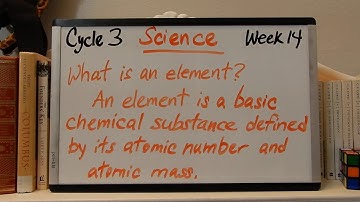 Cycle 3 Science Week 14
What is an element?
An element is a basic
chemical substance defined
by its atomic number and
atomic mass.
COLUMBUS